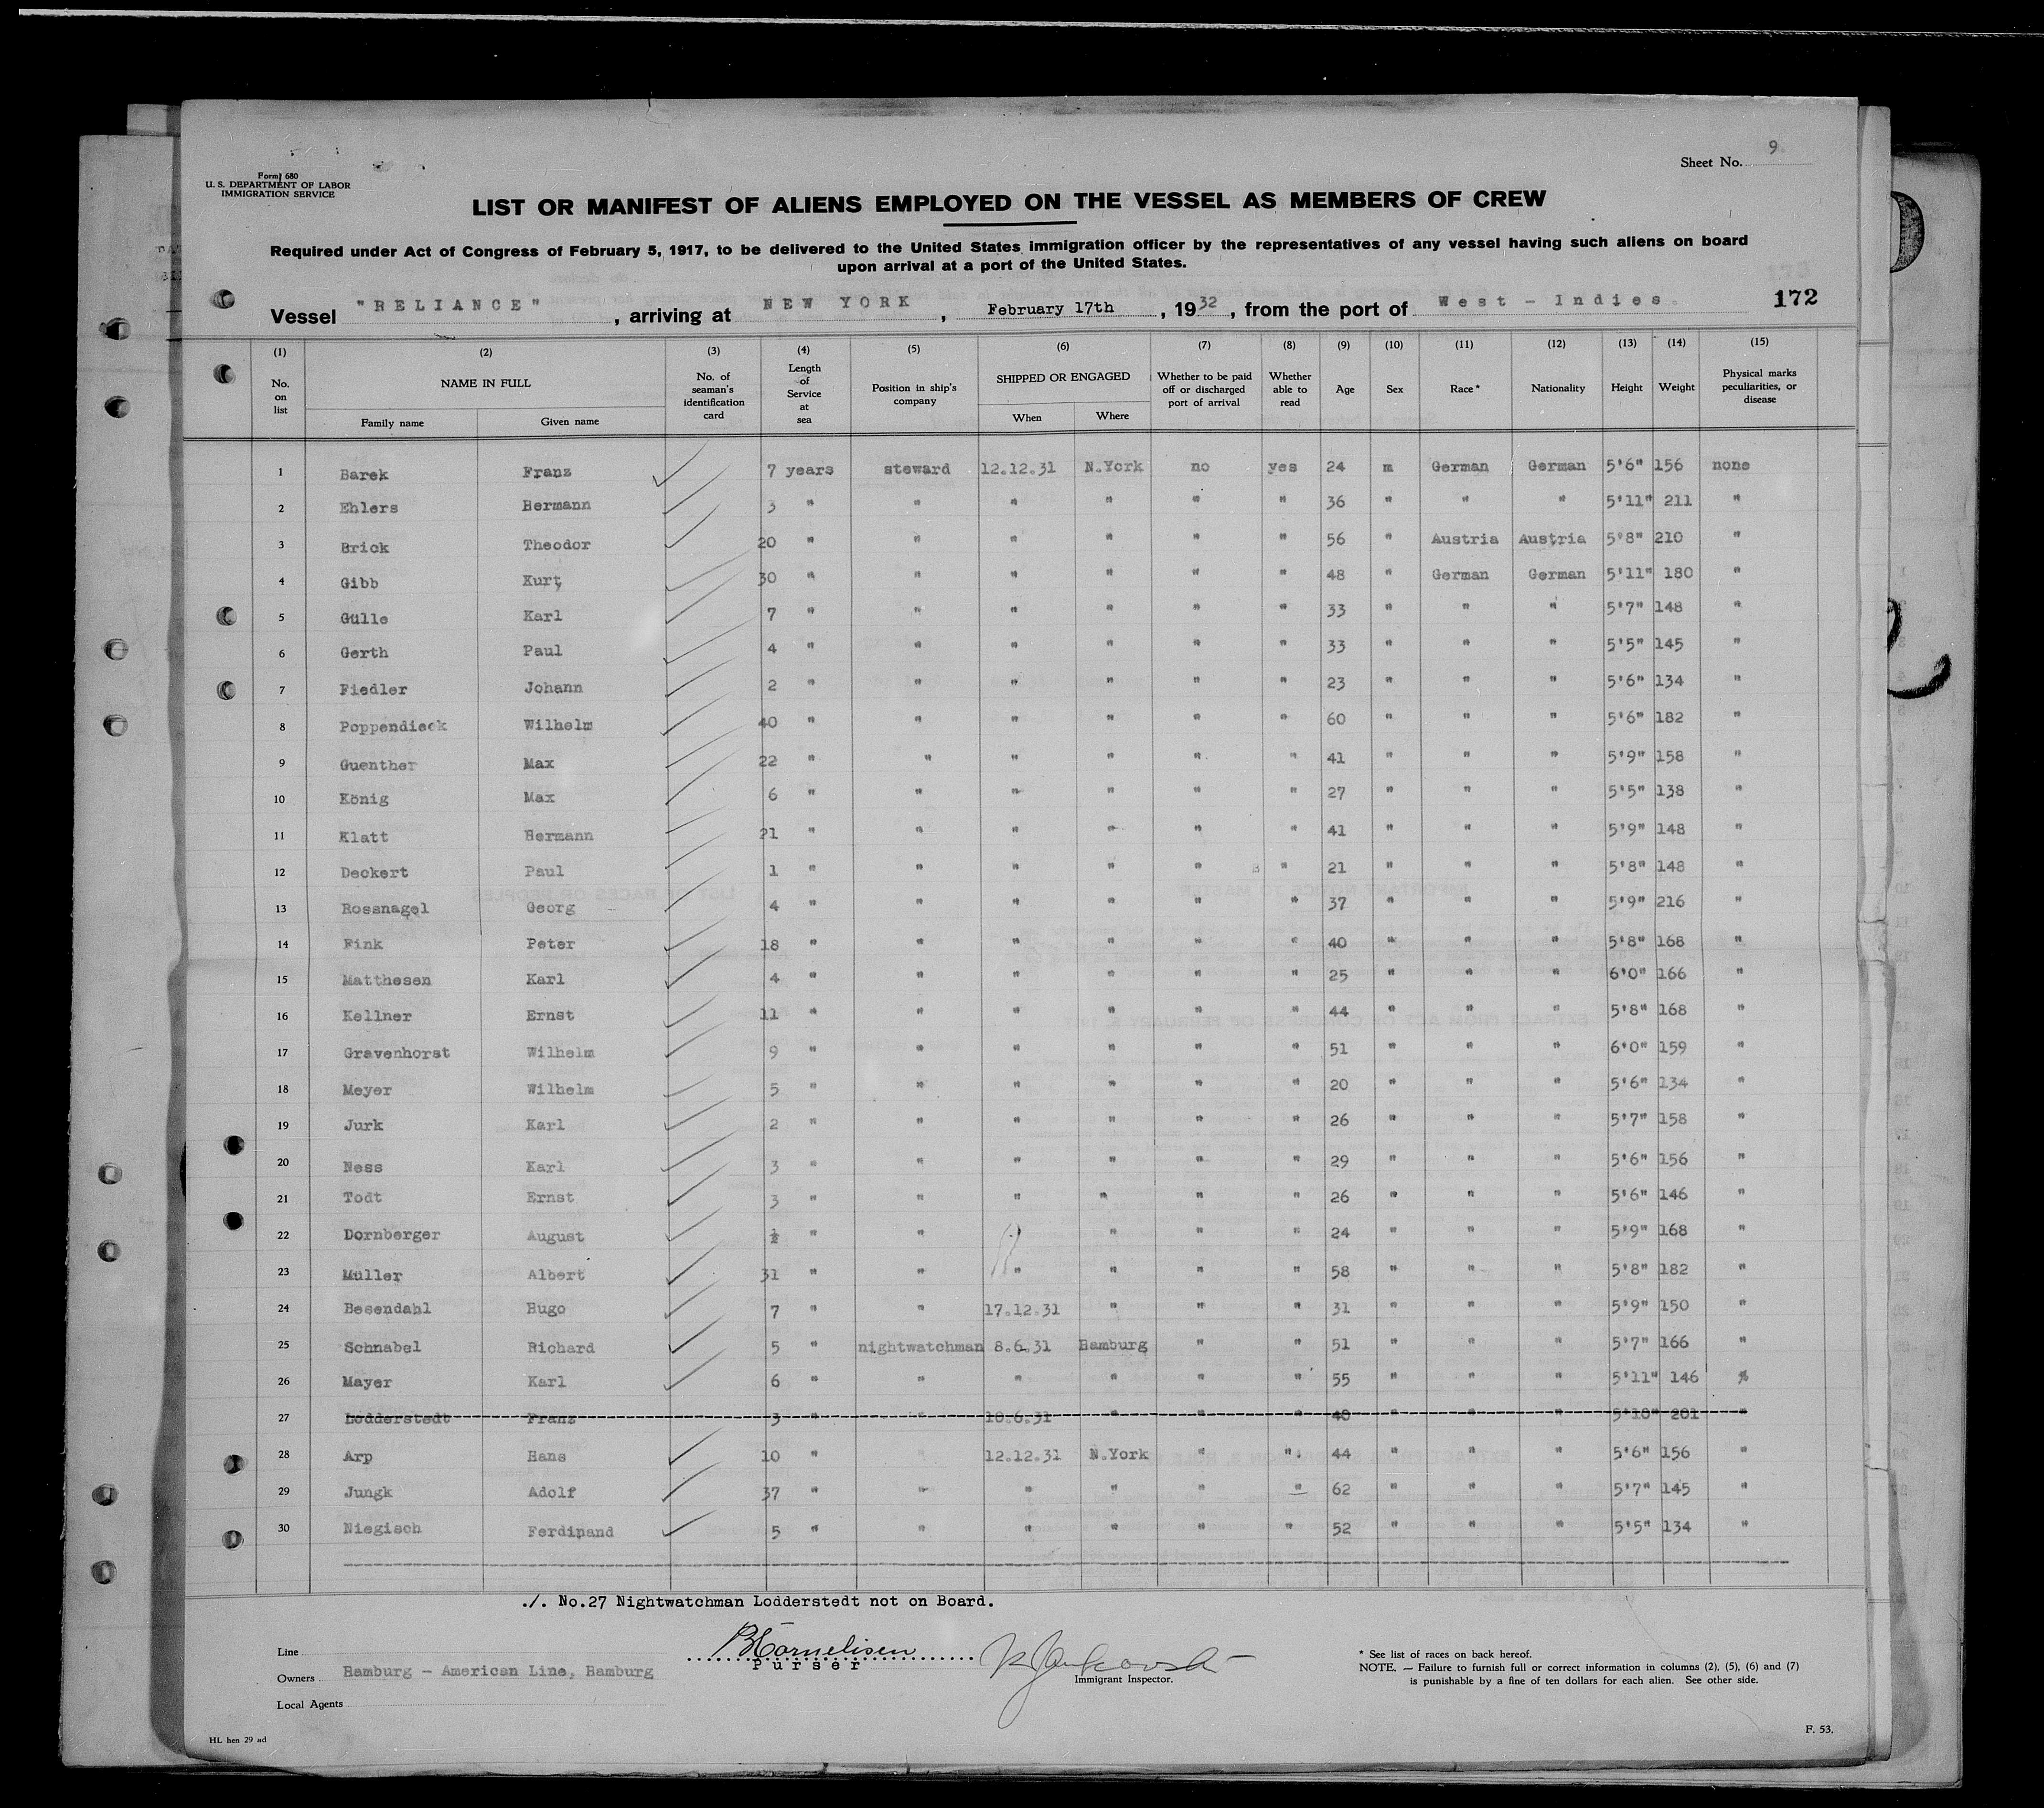 Sheet No. 9.
Form 680
U. S. DEPARTMENT OF LABOR
IMMIGRATION SERVICE
LIST OR MANIFEST OF ALIENS EMPLOYED ON THE VESSEL AS MEMBERS OF CREW
Required under Act of Congress of February 5, 1917, to be delivered to the United States immigration officer by the representatives of any vessel having such aliens on board
upon arrival at a port of the United States.
Vessel "RELIANCE", arriving at NEW YORK, February 17th, 1932, from the port of West - Indies. 172
(1) (2) (3) (4) (5) (6) (7) (8) (9) (10) (11) (12) (13) (14) (15)
No. on list NAME IN FULL Family name Given name No. of seaman's identification card Length of Service at sea Position in ship's company SHIPPED OR ENGAGED When Where Whether to be paid off or discharged port of arrival Whether able to read Age Sex Race* Nationality Height Weight Physical marks peculiarities, or disease
1 Barek Franz 7 years steward 12.12.31 N.York no yes 24 m German German 5'6" 156 none
2 Ehlers Hermann 3 " " " " " " 36 " " " 5'11" 211 "
3 Brick Theodor 20 " " " " " " 56 " Austria Austria 5'8" 210 "
4 Gibb Kurt 30 " " " " " " 48 " German German 5'11" 180 "
5 Gülle Karl 7 " " " " " " 33 " " " 5'7" 148 "
6 Gerth Paul 4 " " " " " " 33 " " " 5'5" 145 "
7 Fiedler Johann 2 " " " " " " 23 " " " 5'6" 134 "
8 Poppendieck Wilhelm 40 " " " " " " 60 " " " 5'6" 182 "
9 Guenther Max 22 " " " " " " 41 " " " 5'9" 158 "
10 König Max 6 " " " " " " 27 " " " 5'5" 138 "
11 Klatt Hermann 21 " " " " " " 41 " " " 5'9" 148 "
12 Deckert Paul 1 " " " " " " 21 " " " 5'8" 148 "
13 Rossnagel Georg 4 " " " " " " 37 " " " 5'9" 216 "
14 Fink Peter 18 " " " " " " 40 " " " 5'8" 168 "
15 Matthesen Karl 4 " " " " " " 25 " " " 6'0" 166 "
16 Kellner Ernst 11 " " " " " " 44 " " " 5'8" 168 "
17 Gravenhorst Wilhelm 9 " " " " " " 51 " " " 6'0" 159 "
18 Meyer Wilhelm 5 " " " " " " 20 " " " 5'6" 134 "
19 Jurk Karl 2 " " " " " " 26 " " " 5'7" 158 "
20 Ness Karl 3 " " " " " " 29 " " " 5'6" 156 "
21 Todt Ernst 3 " " " " " " 26 " " " 5'6" 146 "
22 Dornberger August ½ " " " " " " 24 " " " 5'9" 168 "
23 Müller Albert 31 " " " " " " 58 " " " 5'8" 182 "
24 Besendahl Hugo 7 " " 17.12.31 " " " 31 " " " 5'9" 150 "
25 Schnabel Richard 5 " nightwatchman 8.6.31 Hamburg " " 51 " " " 5'7" 166 "
26 Mayer Karl 6 " " " " " " 55 " " " 5'11" 146 "
27 Lodderstedt Franz 3 " " 10.6.31 " " " 40 " " " 5'10" 201 "
28 Arp Hans 10 " " 12.12.31 N.York " " 44 " " " 5'6" 156 "
29 Jungk Adolf 37 " " " " " " 62 " " " 5'7" 145 "
30 Niegisch Ferdinand 5 " " " " " " 52 " " " 5'5" 134 "
./. No.27 Nightwatchman Lodderstedt not on Board.
Line
Owners Hamburg - American Line, Hamburg
Local Agents
Cornelisen
Purser
Immigrant Inspector.
* See list of races on back hereof.
NOTE. — Failure to furnish full or correct information in columns (2), (5), (6) and (7)
is punishable by a fine of ten dollars for each alien. See other side.
HL hen 29 ad
F. 53.